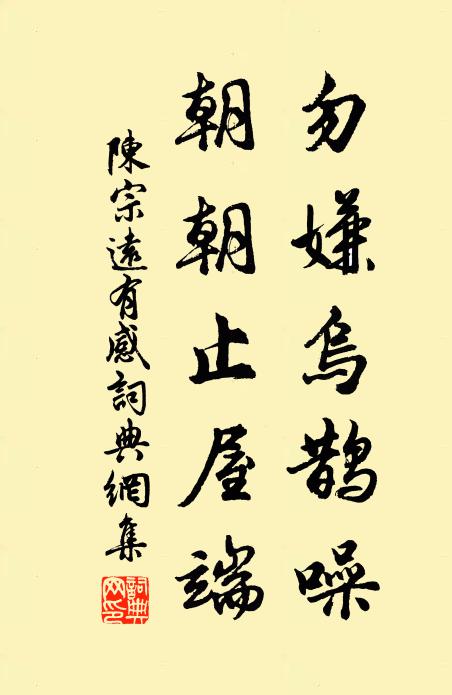 勿嫌烏鵲噪
朝朝止屋端
陳宗遠有感詞典網集
詞典网印